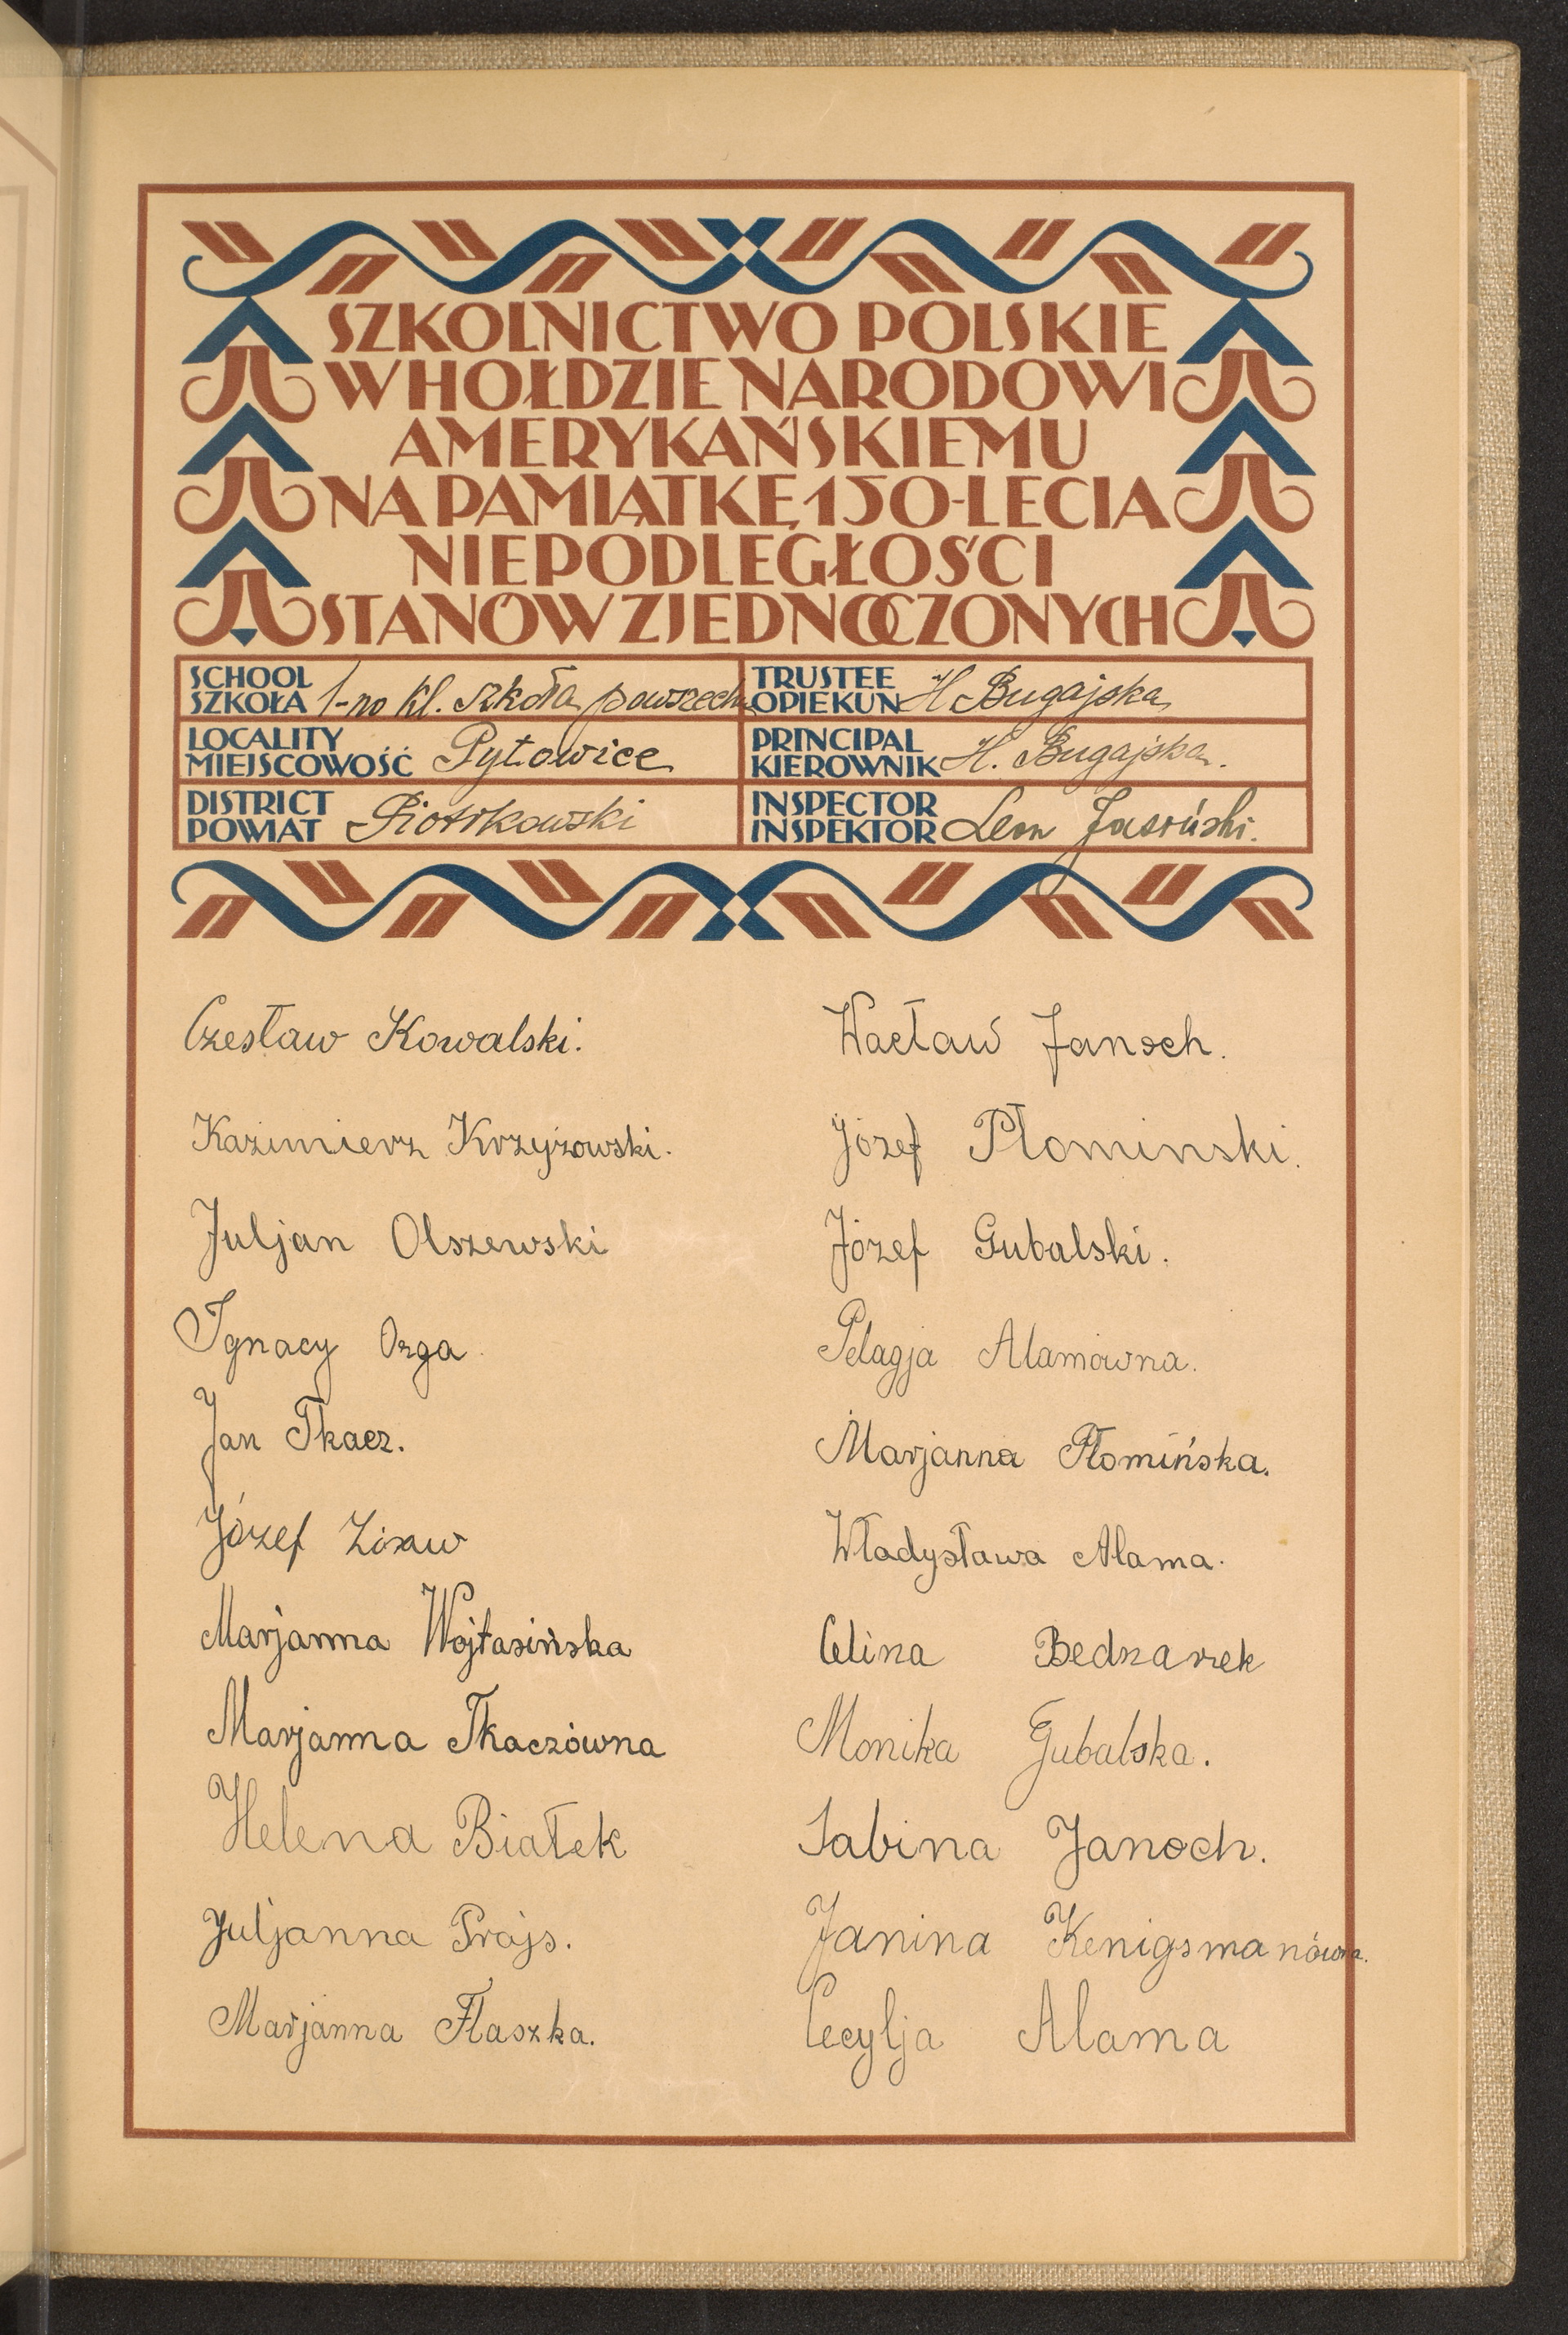 SZKOLNICTWO POLSKIE
W HOŁDZIE NARODOWI
AMERYKAŃSKIEMU
NA PAMIĄTKĘ 150-LECIA
NIEPODLEGŁOŚCI
STANÓW ZJEDNOCZONYCH
SCHOOL
SZKOŁA 1-no kl. szkoła powszech.
TRUSTEE
OPIEKUN H Bugajska
LOCALITY
MIEJSCOWOŚĆ Pytowice
PRINCIPAL
KIEROWNIK H. Bugajska.
DISTRICT
POWIAT Piotrkowski
INSPECTOR
INSPEKTOR Leon Jasiński.
Czesław Kowalski.
Kazimierz Krzyżowski.
Juljan Olszewski
Ignacy Orga.
Jan Tkacz.
Józef
Marjanna Wojtasińska
Marjanna Tkaczówna
Helena Białek
Juljanna Prajs.
Marjanna Flaszka.
Wacław Janoch.
Józef Płominski.
Józef Gubalski.
Pelagja Alamówna.
Marjanna Płomińska.
Władysława Alama.
Celina Bednarek
Monika Gubalska.
Sabina Janoch.
Janina Kenigsmanówna.
Cecylja Alama